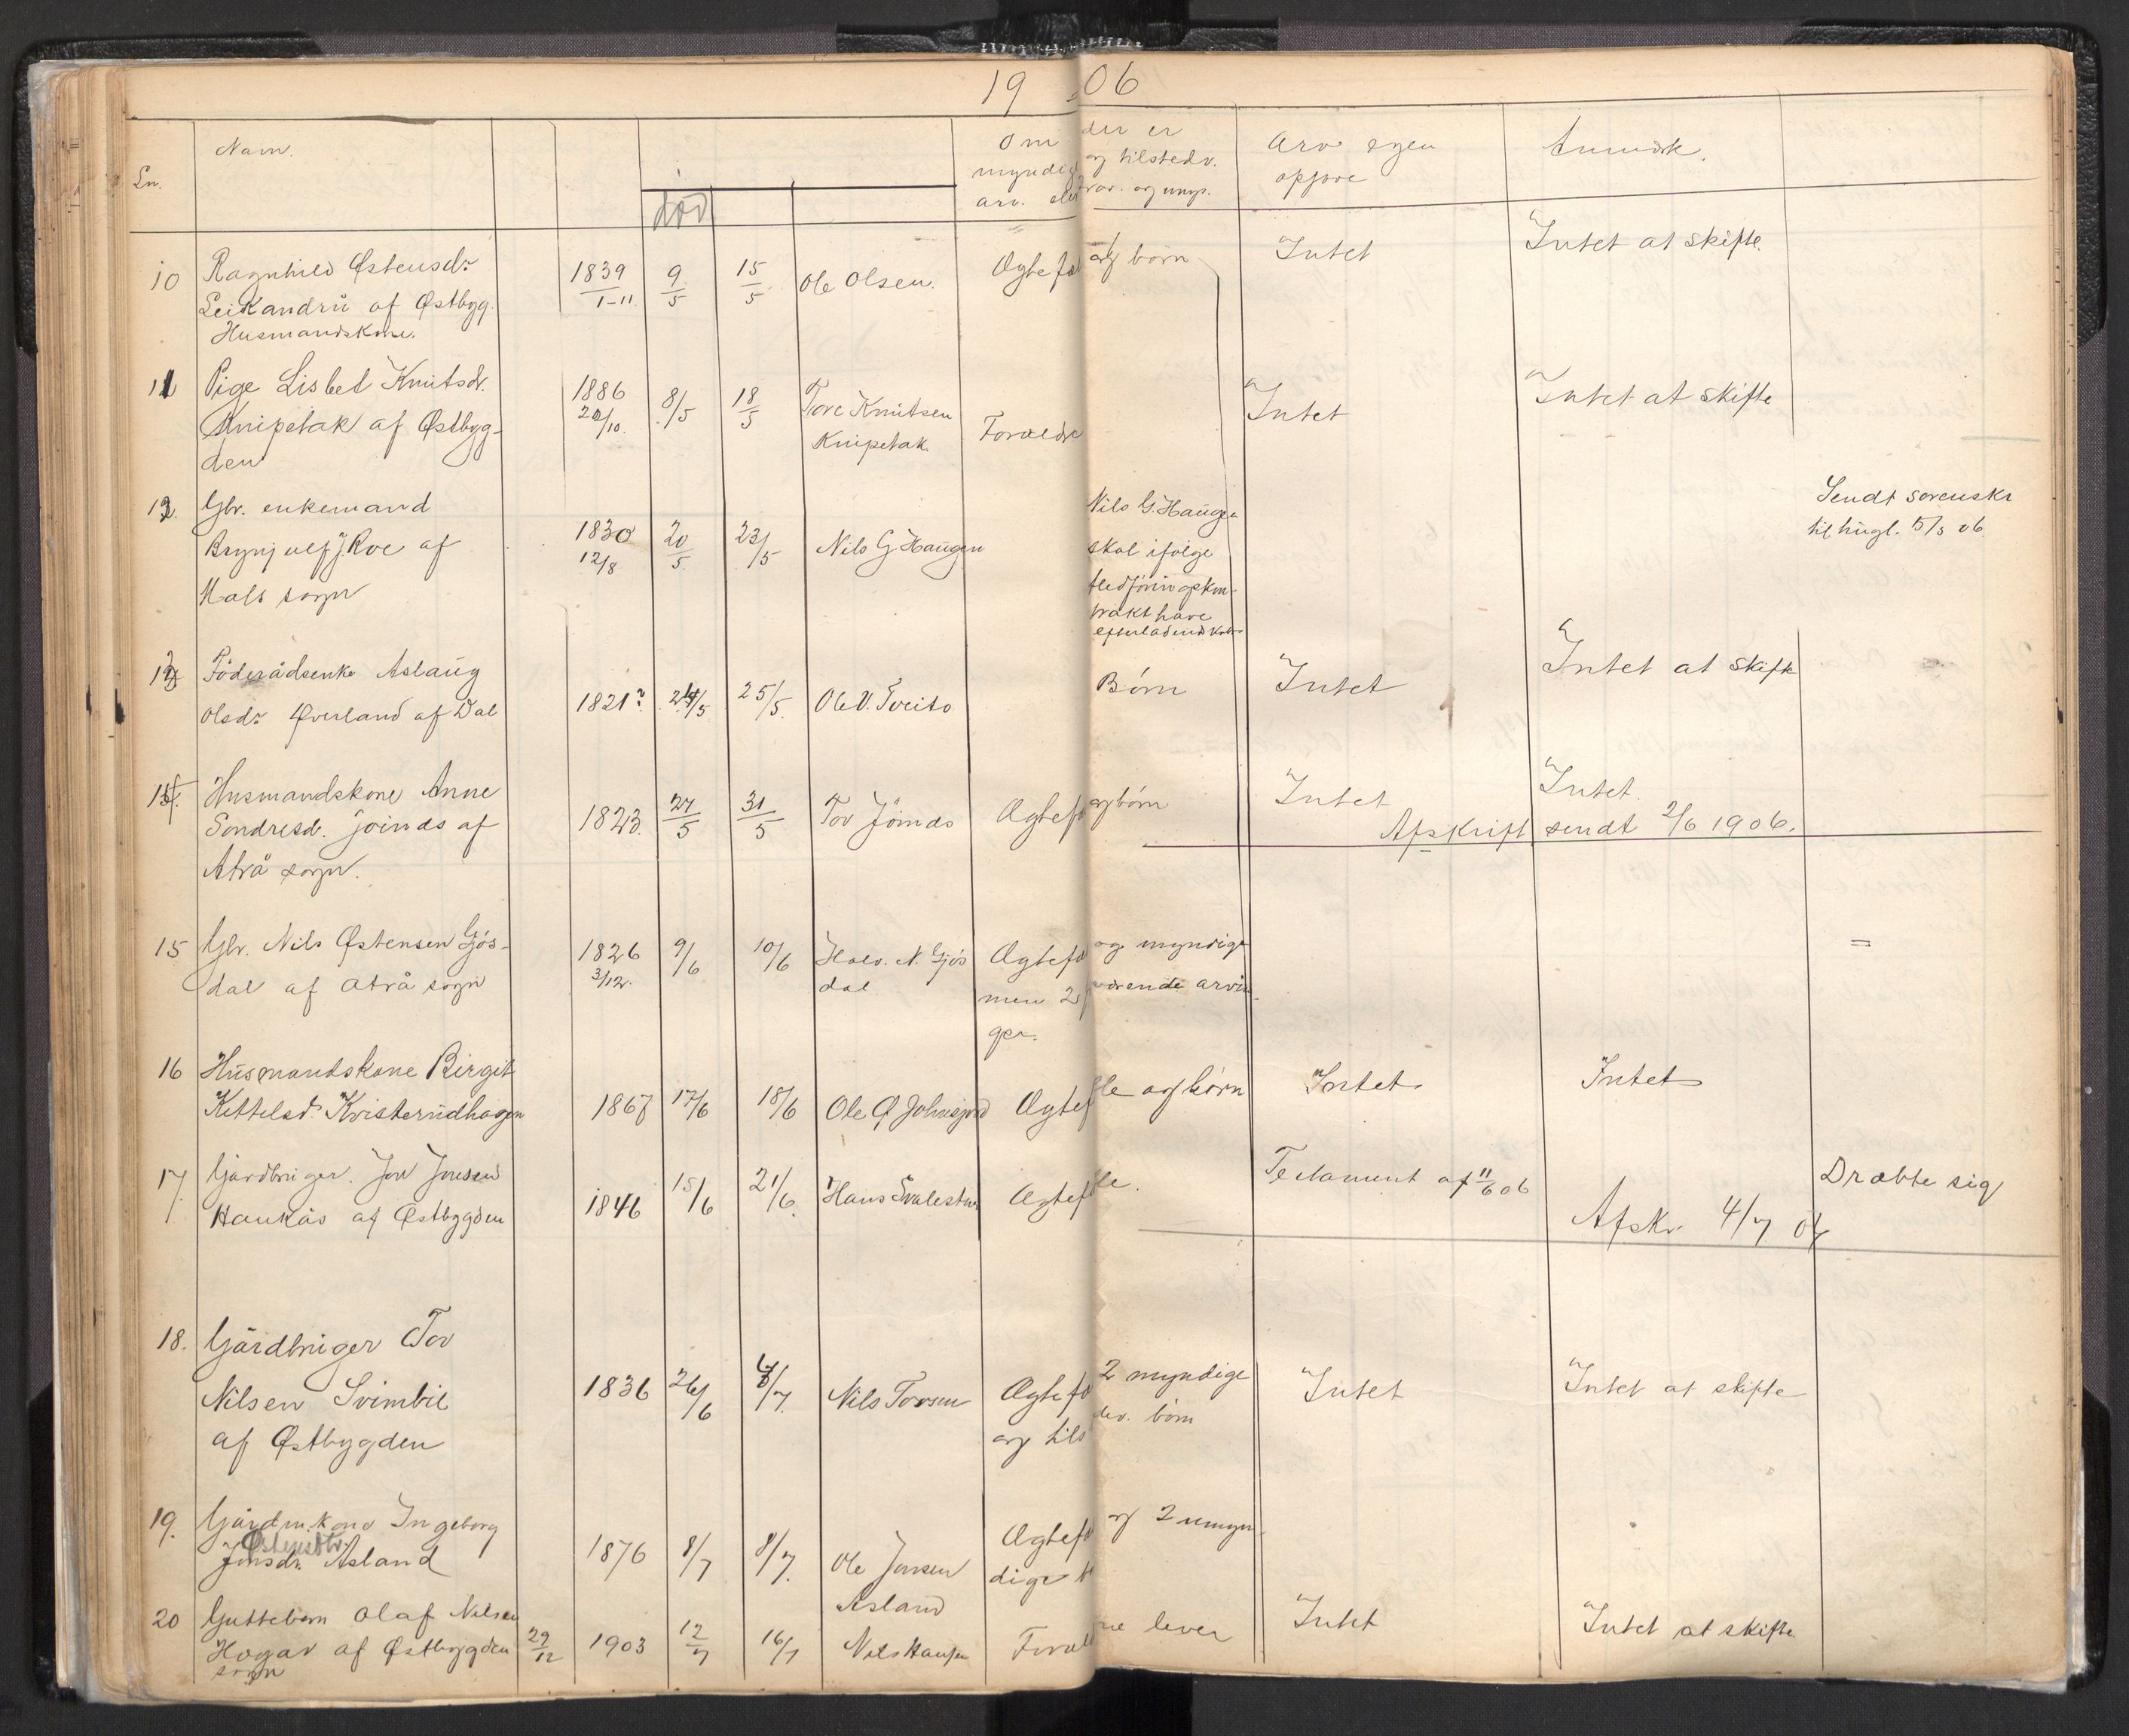 19 06
Ln.
Navn.
død
Om der er
myndig og tilstedv.
arv. og umyn.
Arv egen
opgave
Anmærk.
10 Ragnhild Østensdr 1839 9/5 15/5 Ole Olsen. Ægtef og børn Intet Intet at skifte.
af Østbyg. 1-11
Husmandskone.
11 Pige Lisbet Knutsdr. 1886 8/5 18/5 Tore Knutsen Forældre Intet Intet at skifte
Knipetak af Østbyg- 20/10. Knipetak
den
12. Gbr. enkemand Nils G. Haugen Sendt sorenskr
Brynjulf J Roe af 1830 20/5 23/5 Nils G Haugen skal ifølge til tingl. 5/5 06
Mæls sogn 12/8
trakt have
13 Föderådsenke Aslaug Börn Intet Intet at skifte
Olsdr Øverland af Dal 1821? 24/5 25/5 Ole V. Tveito
14. Husmandskone Anne Intet Intet.
Sondresd. Joinds af 1823. 27/5 31/5 Tov Jöinds Ægtef og börn
Afskrift sendt 2/6 1906.
Atrå sogn.
15 Gbr. Nils Østensen Gjös- 1826 9/6 10/6 Halv. N. Gjös Ægtef og myndige =
dal af Atrå sogn 3/12. dal men 2 værende arvin
ger.
16 Husmandskone Birgit Intet Intet
Kittelsd. Kvisterudhagen 1867 17/6 18/6 Ole Ø Johnsjord Ægtefle og börn
17. Gårdbruger. Jon Jonsen Testament af 11/6 06 Dræbte sig
Haukås af Østbygden 1846 15/6 21/6. Hans Ægtefle.
Afskr 4/7 06
18. Gårdbruger Tov
Nilsen Svimbil 1836 26/6 4/7. Nils Tovsen Ægtef 2 myndige Intet Intet at skifte
af Østbygden og tilsdev. börn
19. Gårdm.kone Ingeborg Ægtef og 2 umyn
Østensdtr.
Jonsdr. Åsland 1876 8/7 8/7. Ole Jonsen dige
Åsland
20 Guttebarn Olaf Nilsen Intet Intet at skifte
Hogar af Østbygden 29/12 1903 12/7 16/7 Nils Hansen Forældre lever
sogn